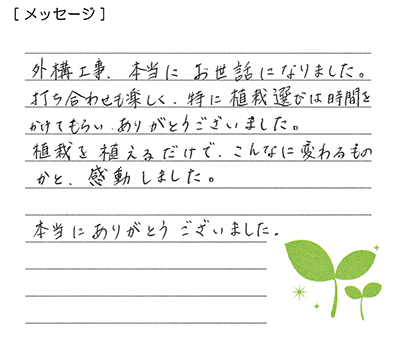 [メッセージ]
外構工事、本当に お世話になりました。
打ち合わせも楽しく、特に植栽選びは時間を
かけてもらい、ありがとうございました。
植栽を植えるだけで、こんなに変わるもの
かと、感動しました。
本当にありがとうございました。